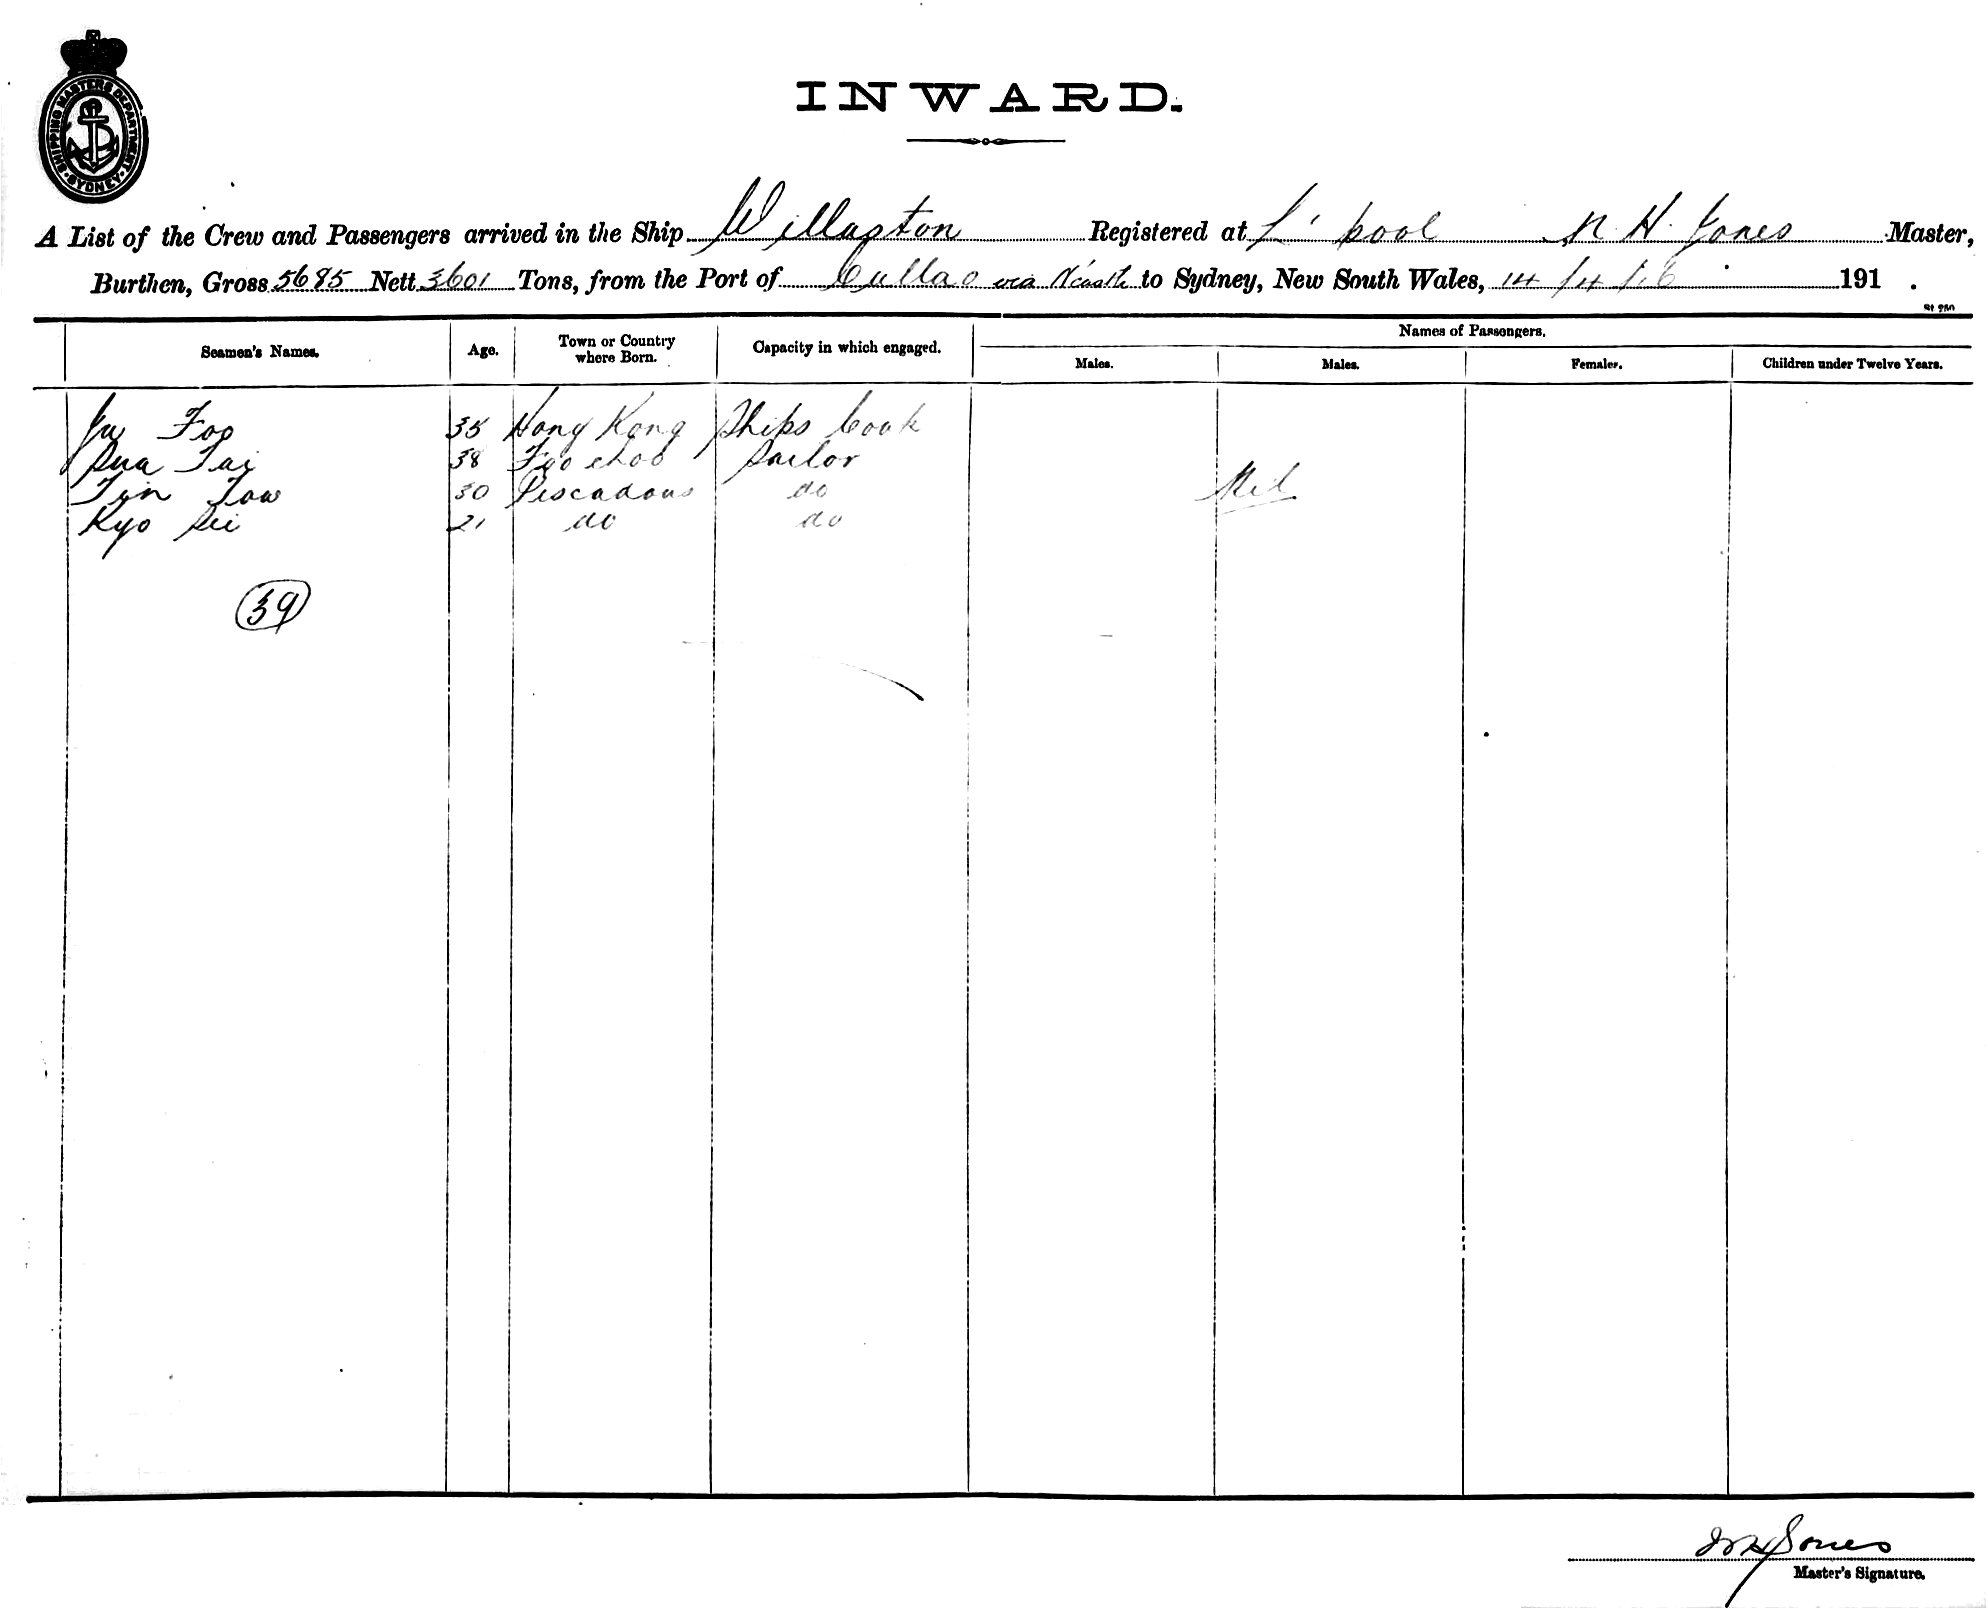 SHIPPING MASTERS DEPARTMENT. SYDNEY.
INWARD.
A List of the Crew and Passengers arrived in the Ship Willaston Registered at L'pool N. H. Jones Master,
Burthen, Gross 5685 Nett 3601 Tons, from the Port of Cullao via N'castle to Sydney, New South Wales, 14/4/16 191 .
Names of Passengers.
Seamen's Names. Age. Town or Country where Born. Capacity in which engaged. Males. Males. Females. Children under Twelve Years.
Foo 35 Hong Kong Ships Cook
Sua Tai 38 Foo choo Sailor
Tyin Tow 30 Pescadous do Nil
Kyo Sii 21 do do
39
Jones
Master's Signature.